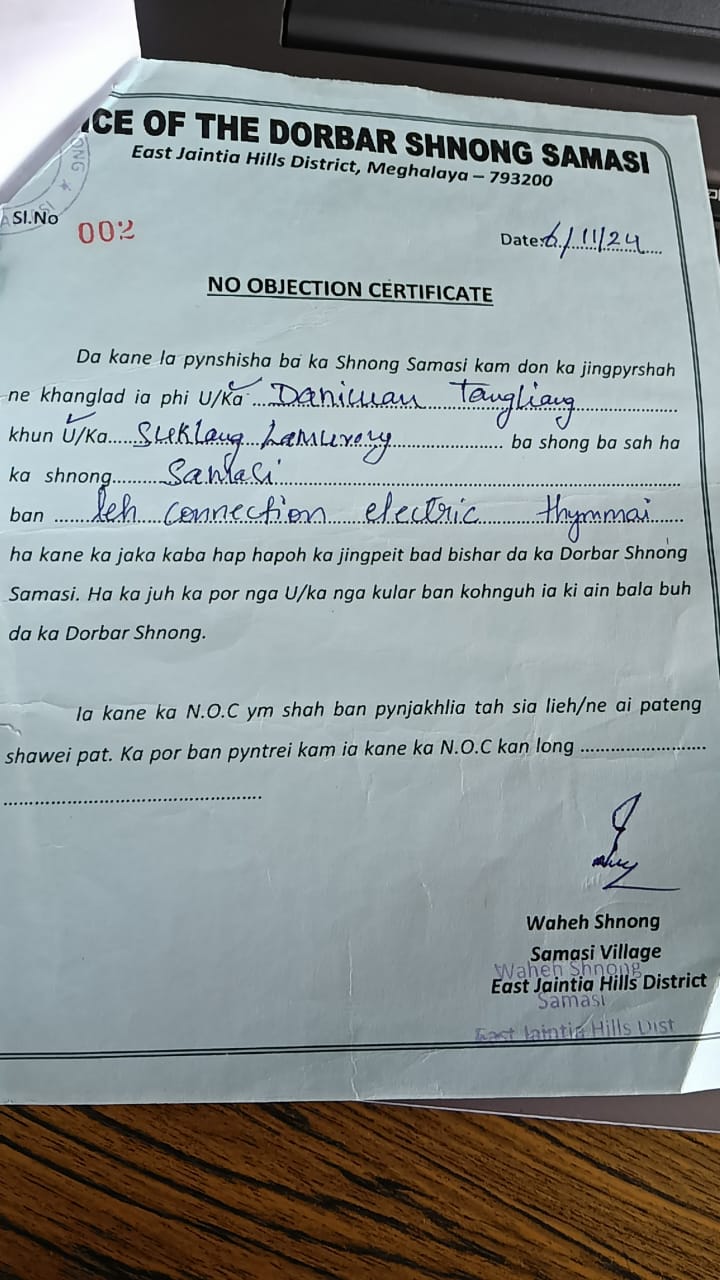 ICE OF THE DORBAR SHNONG SAMASI
East Jaintia Hills District, Meghalaya – 793200
ONG ★
Sl.No 002
Date:6/11/24
NO OBJECTION CERTIFICATE
Da kane la pynshisha ba ka Shnong Samasi kam don ka jingpyrshah
ne khanglad ia phi U/Ka Tangliang
khun U/Ka ba shong ba sah ha
ka shnong Samasi
ban leh connection electric thymmai
ha kane ka jaka kaba hap hapoh ka jingpeit bad bishar da ka Dorbar Shnong
Samasi. Ha ka juh ka por nga U/ka nga kular ban kohnguh ia ki ain bala buh
da ka Dorbar Shnong.
Ia kane ka N.O.C ym shah ban pynjakhlia tah sia lieh/ne ai pateng
shawei pat. Ka por ban pyntrei kam ia kane ka N.O.C kan long ........................
................................................
Waheh Shnong
Samasi Village
Waheh Shnong
East Jaintia Hills District
Samasi
East Jaintia Hills Dist